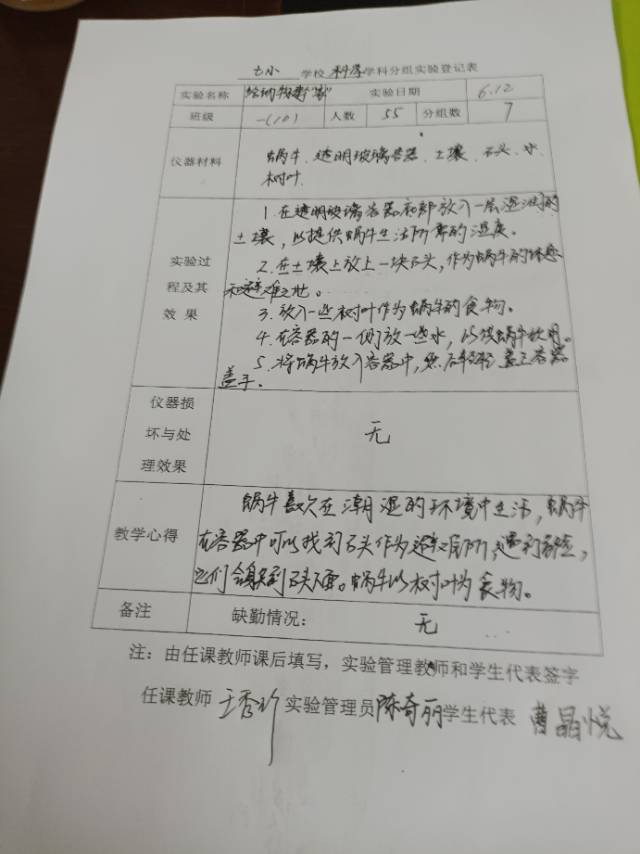 七小 学校 科学 学科分组实验登记表
实验名称 给动物建“家” 实验日期 6.12
班级 一(10) 人数 55 分组数 7
仪器材料 蜗牛、透明玻璃容器、土壤、石头、水、
树叶.
实验过
程及其
效 果
1.在透明玻璃容器内部放入一层湿润的
土壤，以提供蜗牛生活所需的湿度。
2.在土壤上放上一块石头，作为蜗牛的休息
和避难之地。
3.放入一些树叶作为蜗牛的食物。
4.在容器的一侧放一些水，以供蜗牛饮用。
5.将蜗牛放入容器中，然后轻轻盖上容器
盖子.
仪器损
坏与处
理效果
无
教学心得
蜗牛喜欢在潮湿的环境中生活，蜗牛
在容器中可以找到石头作为避难所，遇到
它们会躲到石头下面。蜗牛以树叶为食物。
备注 缺勤情况： 无
注：由任课教师课后填写，实验管理教师和学生代表签字
任课教师 王秀珍 实验管理员 陈奇丽 学生代表 曹晶悦